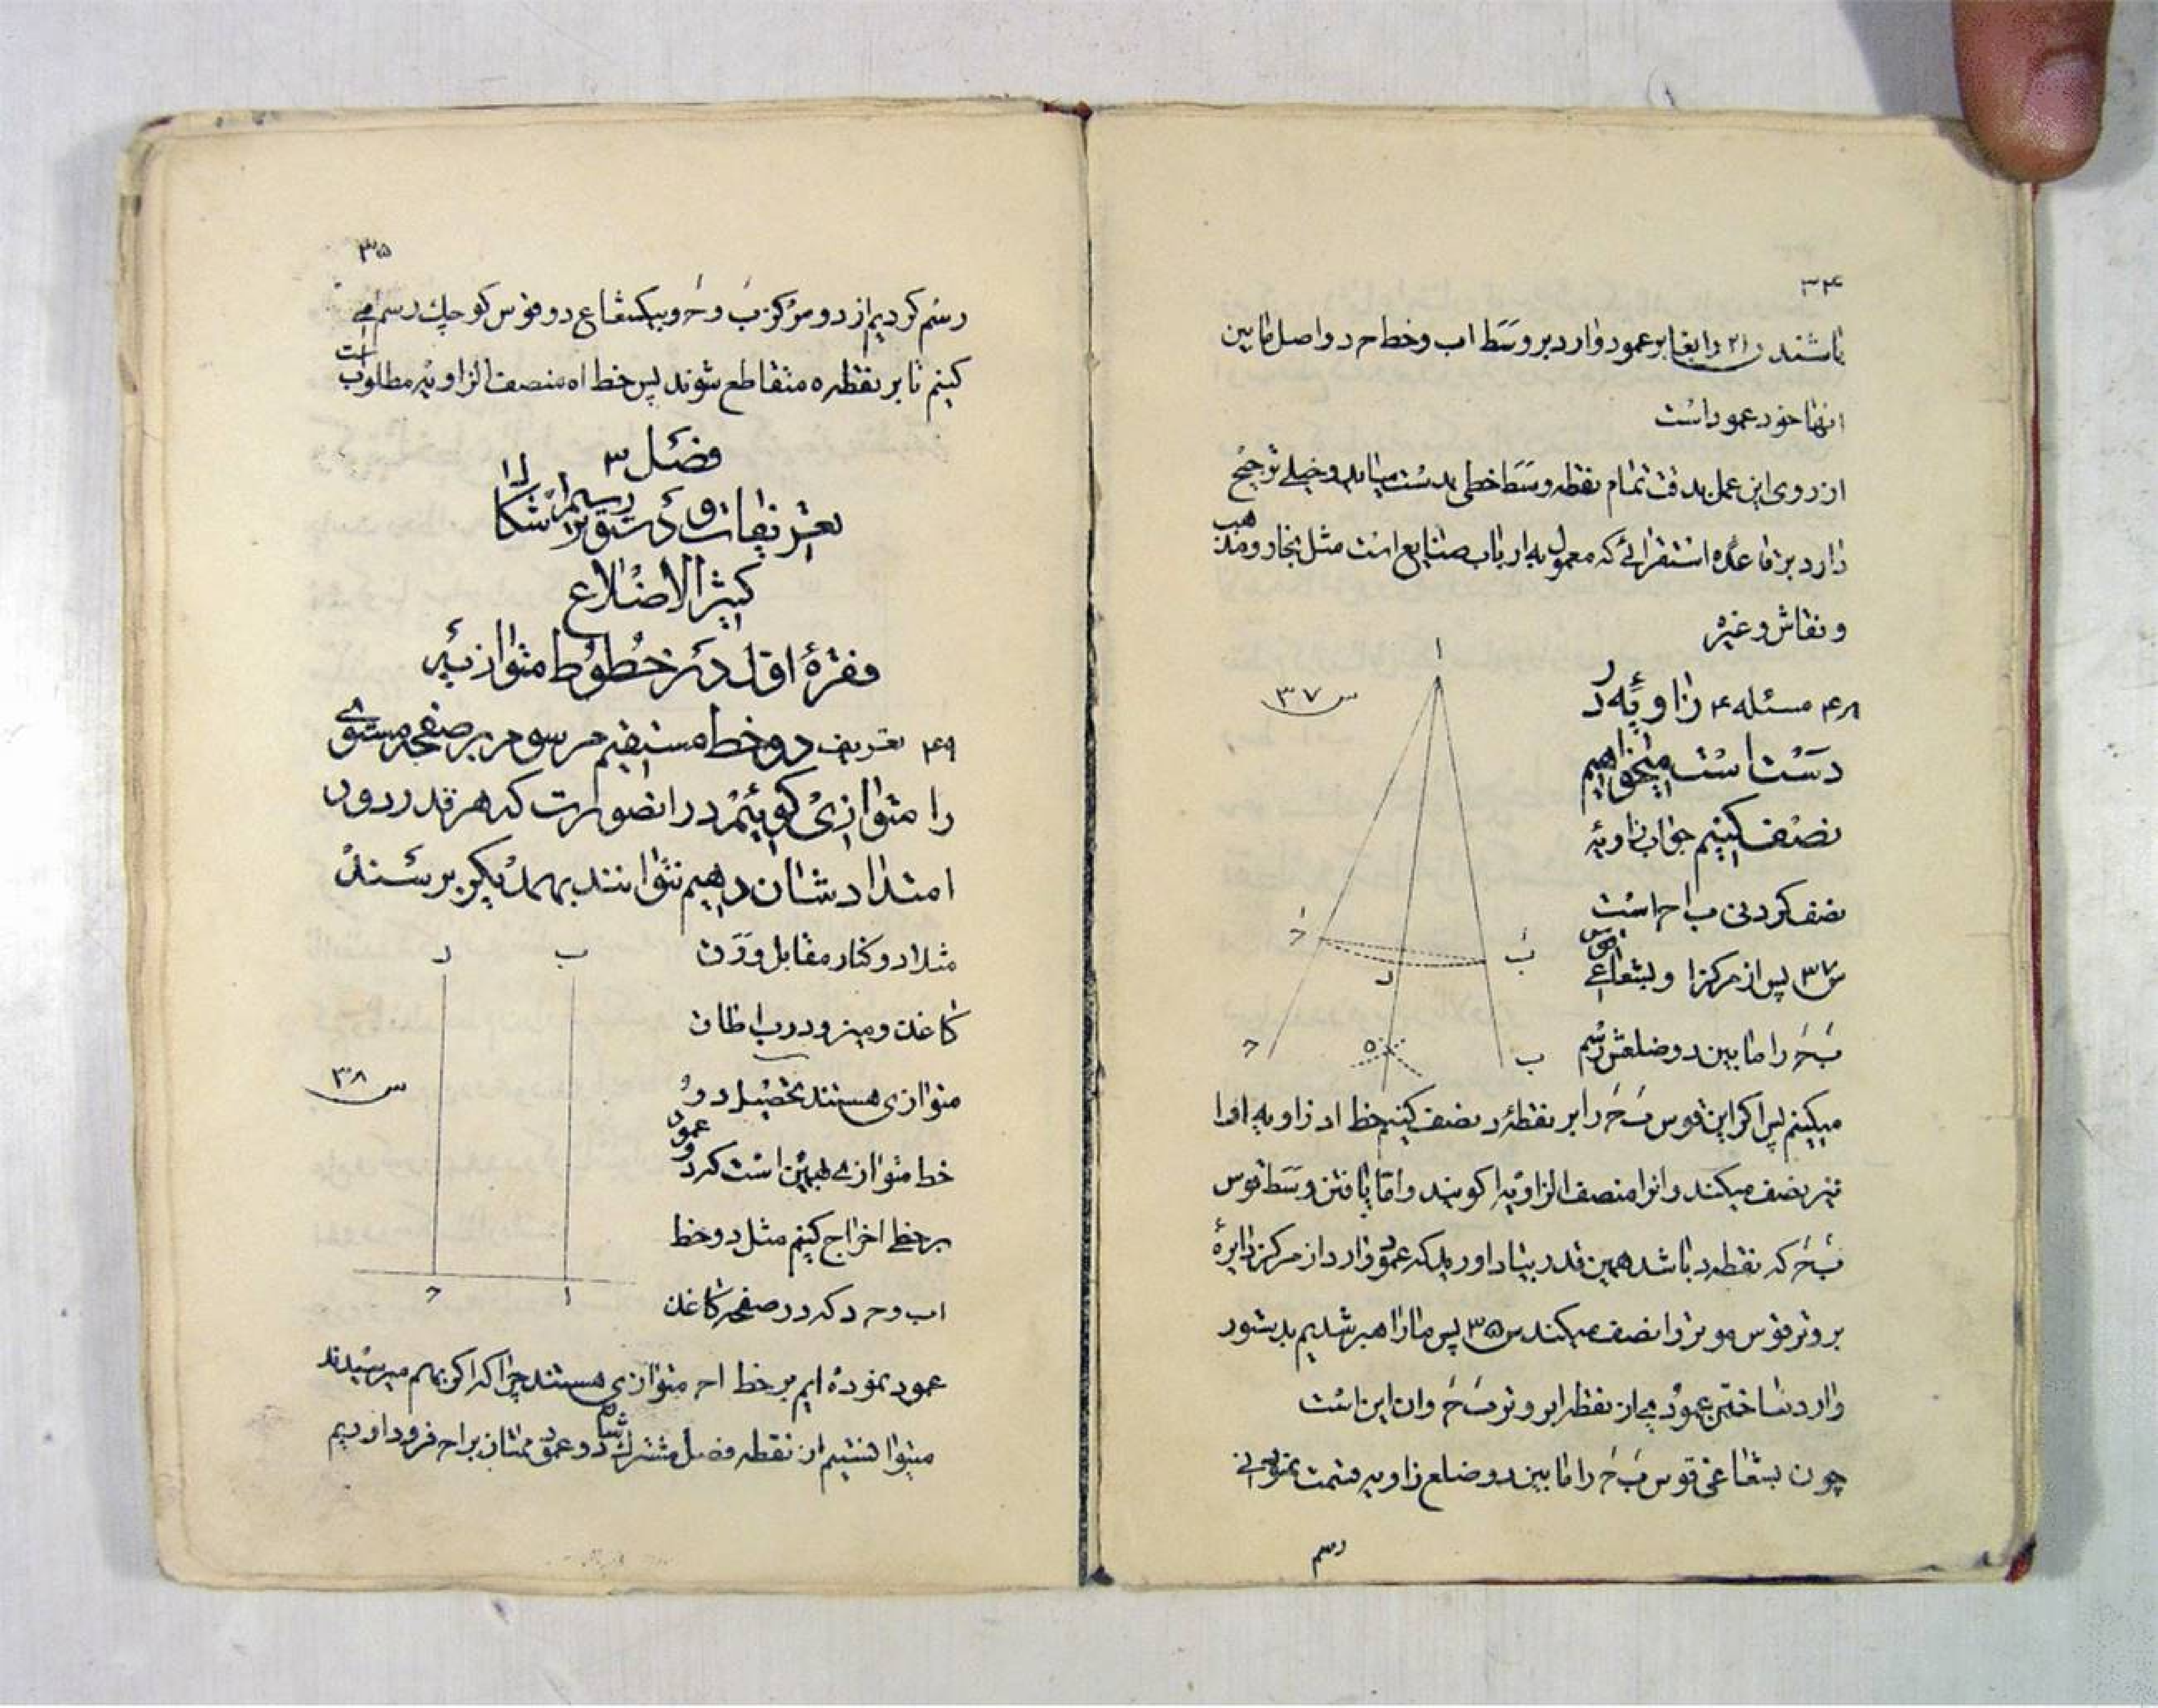 ۳۴
باشند (۲۱ رابعا) بر عمود وارد بر وسط اب وخط ح د واصل مابین
انها خود عمود است
از روی این عمل بدقت تمام نقطه وسط خطی بدست میاید وخیلی ترجیح
دارد بر قاعده استقرائی که معمول به ارباب صنایع است مثل نجار ومذهب
ونقاش وغیره
۴۸ مسئله ۴ زاویه در
دست است میخواهیم
نصف کنیم جواب زاویه
نصف کردنی ب ا ح است
س ۳۷ پس از مرکز ا وبشعاعی قوس
بَ حَ را مابین دو ضلعش رسم
میکنیم پس اکر این قوس بَ حَ را بر نقطهٔ د نصف کنیم خط اد زاویه ا را
نیز نصف میکند وانرا منصف الزاویه کویند واما یافتن وسط قوس
بَ حَ که نقطه د باشد همین قدر بیاد اورید که عمود وارد از مرکز دایرهٔ
بر وتر قوس موتر را نصف میکند س ۳۵ پس ما راهبر شدیم بدستور
وارد ساختن عمودی از نقطه ا بر وتر بَ حَ وان این است
چون بشعاعی قوس بَ حَ را مابین دو ضلع زاویه قسمت
رسم
س ۳۷
ا
حَ
بَ
د
ح
ه
ب
۳۵
رسم کردیم از دو مرکز بَ و حَ وبیکشعاع دو قوس کوچک رسم می
کنیم تا بر نقطه ه متقاطع شوند پس خط اه منصف الزاویه مطلوب است
فصل ۳
تعریفات ودستور رسم اشکال
کثیر الاضلاع
فقرهٔ اول در خطوط متوازیه
۴۹ تعریف دو خط مستقیم مرسوم بر صفحه مستوی
را متوازی کوئیم در انصورت که هر قدر در دور
امتدادشان دهیم نتوانند بهمدیکر برسند
مثلا دو کنار مقابل ورق
کاغذ ومیز ودرب اطاق
متوازی هستند تحصیل دو
خط متوازی همین است که دو عمود
بر خطی اخراج کنیم مثل دو خط
اب و ح د که در صفحه کاغذ
عمود نموده ایم بر خط اح متوازی هستند چرا که اکر بهم میرسیدند
میتوانستیم از نقطه فصل مشترک شان دو عمود ممتاز بر اح فرود اوریم
د
ب
س ۳۸
ح
ا